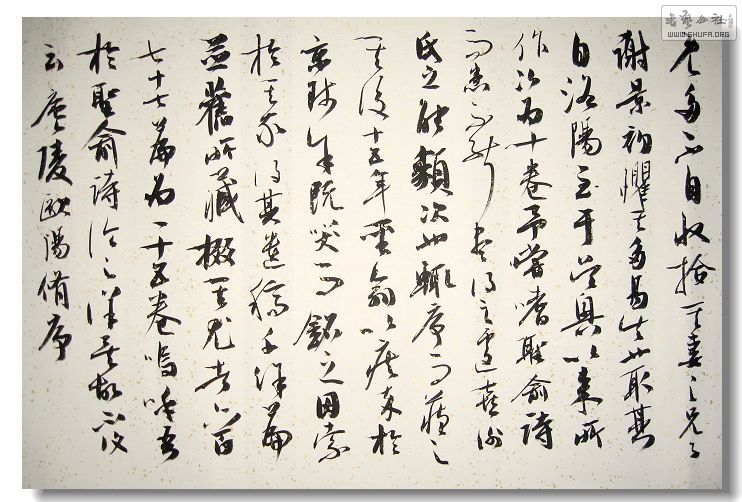 多不自收拾其妻之兄子
謝景初懼其多易失也取其
自洛陽至于吳興以來所
作次為十卷予嘗嗜聖俞詩
而患不能盡得之遽喜謝
氏之能類次也輒序而藏之
其後十五年聖俞以疾卒於
京師余既哭而銘之因索
於其家得其遺稿千餘篇
并舊所藏掇其尤者六百
七十七篇為一十五卷嗚呼吾
於聖俞詩論之詳矣故不復
云廬陵歐陽脩序
书艺公社
WWW.SHUFA.ORG